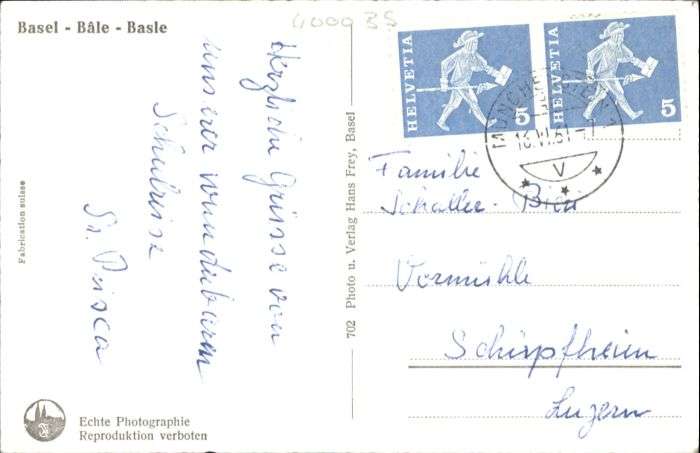 Basel - Bâle - Basle
4000 BS
Herzliche Grüsse von
unserer wunderbaren
Schulreise
Sr. Prisca
Fabrication suisse
Echte Photographie
Reproduktion verboten
702 Photo u. Verlag Hans Frey, Basel
HELVETIA 5
HELVETIA 5
MÜNCHENSTEIN
Familie
Schaller-
Vormühle
Schüpfheim
Luzern